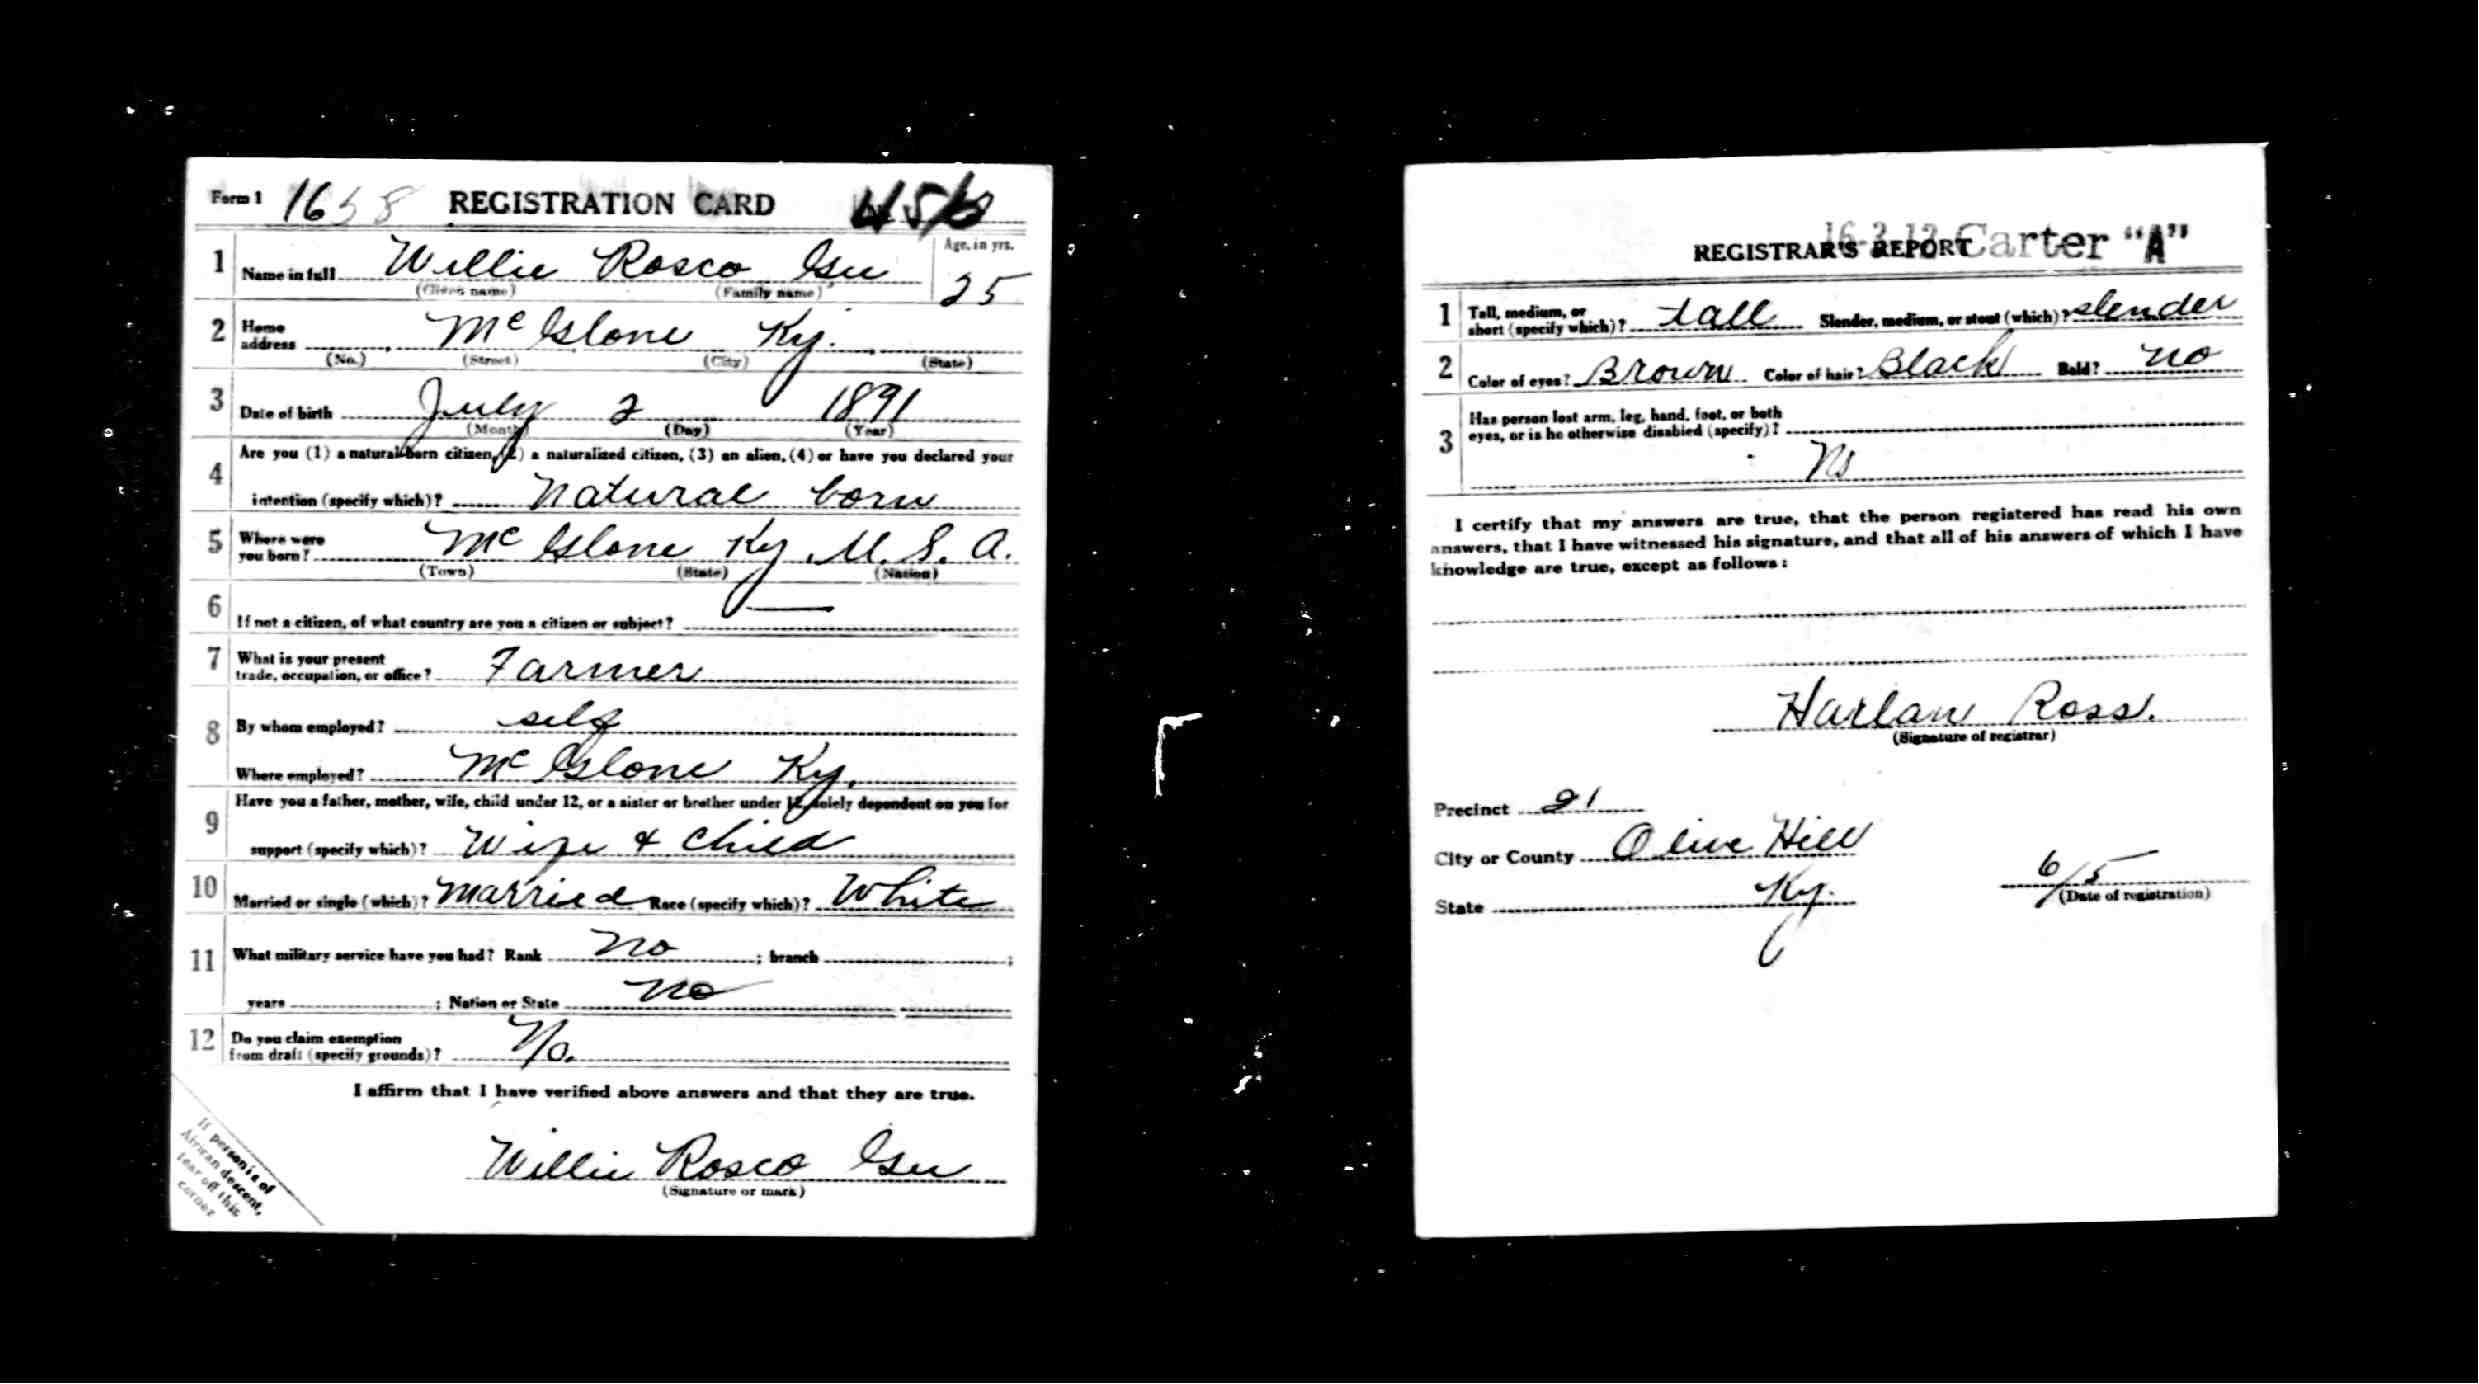 Form 1 1658 REGISTRATION CARD 456
1 Name in full Willie Rosco Gee Age, in yrs. 25
(Given name) (Family name)
2 Home address McGlone Ky.
(No.) (Street) (City) (State)
3 Date of birth July 2 1891
(Month) (Day) (Year)
4 Are you (1) a natural-born citizen, (2) a naturalized citizen, (3) an alien, (4) or have you declared your
intention (specify which)? Natural born
5 Where were you born? McGlone Ky. U. S. A.
(Town) (State) (Nation)
6 If not a citizen, of what country are you a citizen or subject? —
7 What is your present trade, occupation, or office? Farmer
8 By whom employed? self
Where employed? McGlone Ky.
9 Have you a father, mother, wife, child under 12, or a sister or brother under 12, solely dependent on you for
support (specify which)? Wife & child
10 Married or single (which)? Married Race (specify which)? White
11 What military service have you had? Rank No ; branch ;
years ; Nation or State No
12 Do you claim exemption from draft (specify grounds)? No.
I affirm that I have verified above answers and that they are true.
Willie Rosco Gee
(Signature or mark)
If person is of
African descent,
tear off this
corner
16-3-12 Carter "A"
REGISTRAR'S REPORT
1 Tall, medium, or short (specify which)? tall Slender, medium, or stout (which)? slender
2 Color of eyes? Brown Color of hair? Black Bald? No
3 Has person lost arm, leg, hand, foot, or both
eyes, or is he otherwise disabled (specify)?
No
I certify that my answers are true, that the person registered has read his own
answers, that I have witnessed his signature, and that all of his answers of which I have
knowledge are true, except as follows:
Harlan Ross.
(Signature of registrar)
Precinct 21
City or County Olive Hill
State Ky. 6/5
(Date of registration)